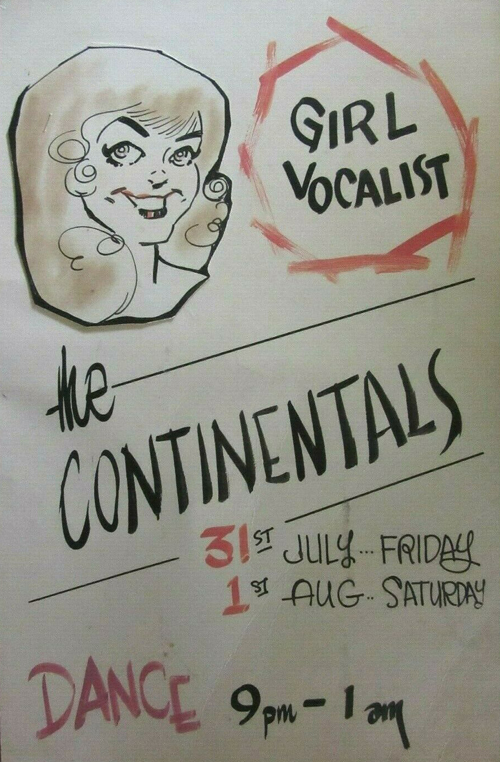 GIRL
VOCALIST
the
CONTINENTALS
31ST JULY... FRIDAY
1ST AUG.. SATURDAY
DANCE 9pm - 1am